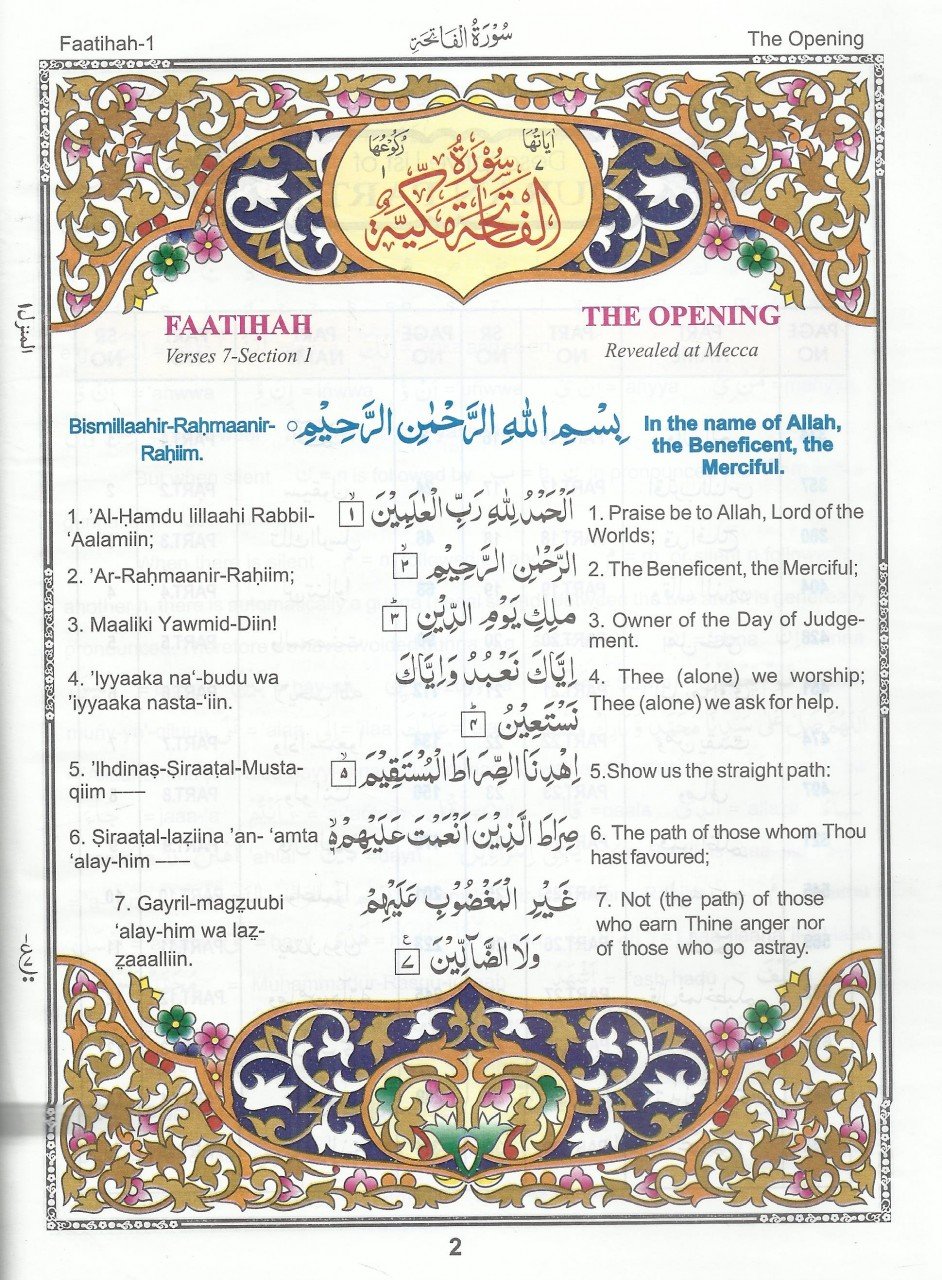 Faatihah-1 سُوْرَةُ الْفَاتِحَةِ The Opening
رُكُوْعُهَا اٰيَاتُهَا
١ سُوْرَةُ ٧
الْفَاتِحَةِ مَكِّيَّةٌ
FAATIḤAH THE OPENING
Verses 7-Section 1 Revealed at Mecca
Bismillaahir-Raḥmaanir-
Raḥiim.
بِسْمِ اللّٰهِ الرَّحْمٰنِ الرَّحِيْمِ
In the name of Allah,
the Beneficent, the
Merciful.
1. ’Al-Ḥamdu lillaahi Rabbil-
‘Aalamiin;
اَلْحَمْدُ لِلّٰهِ رَبِّ الْعٰلَمِيْنَ ١
1. Praise be to Allah, Lord of the
Worlds;
2. ’Ar-Raḥmaanir-Raḥiim;
الرَّحْمٰنِ الرَّحِيْمِ ٢
2. The Beneficent, the Merciful;
3. Maaliki Yawmid-Diin!
مٰلِكِ يَوْمِ الدِّيْنِ ٣
3. Owner of the Day of Judge-
ment.
4. ’Iyyaaka na‘-budu wa
’iyyaaka nasta-‘iin.
اِيَّاكَ نَعْبُدُ وَاِيَّاكَ
نَسْتَعِيْنُ ۴
4. Thee (alone) we worship;
Thee (alone) we ask for help.
5. ’Ihdinaṣ-Ṣiraaṭal-Musta-
qiim ——
اِهْدِنَا الصِّرَاطَ الْمُسْتَقِيْمَ ۵
5.Show us the straight path:
6. Ṣiraaṭal-laẕiina ’an- ‘amta
‘alay-him ——
صِرَاطَ الَّذِيْنَ اَنْعَمْتَ عَلَيْهِمْ
6. The path of those whom Thou
hast favoured;
7. Gayril-magẓuubi
‘alay-him wa laẓ-
ẓaaalliin.
غَيْرِ الْمَغْضُوْبِ عَلَيْهِمْ
وَلَا الضَّآلِّيْنَ ٧
7. Not (the path) of those
who earn Thine anger nor
of those who go astray.
المنزل ١
2